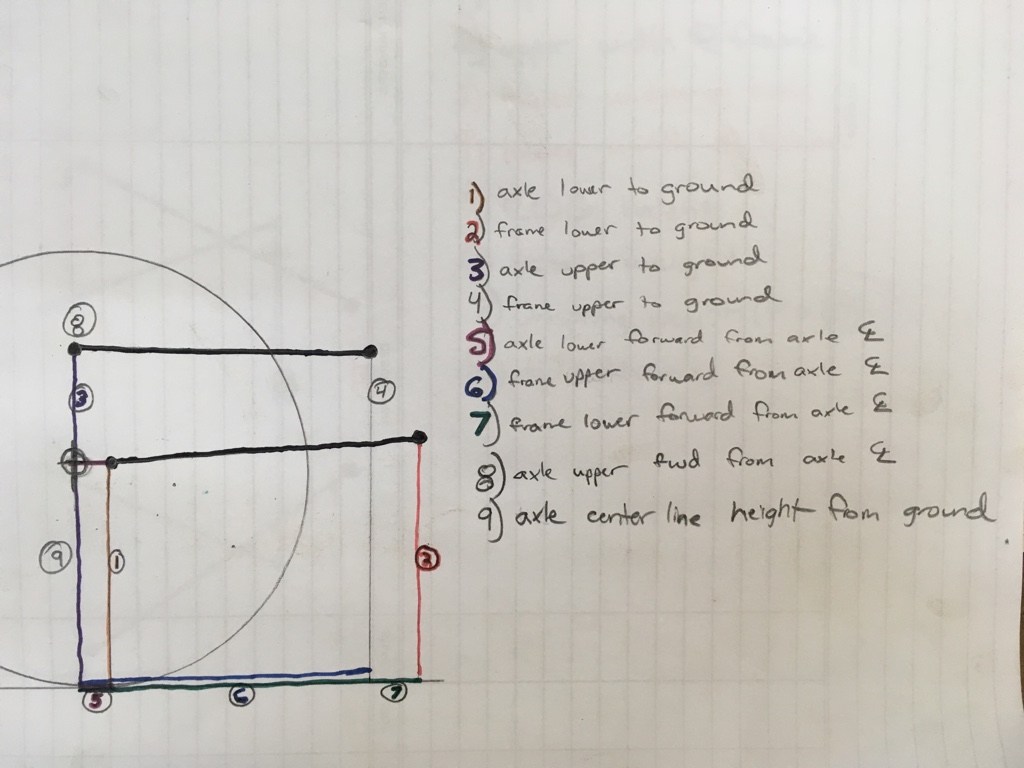 1) axle lower to ground
2) frame lower to ground
3) axle upper to ground
4) frame upper to ground
5) axle lower forward from axle ℄
6) frame upper forward from axle ℄
7) frame lower forward from axle ℄
8) axle upper fwd from axle ℄
9) axle center line height from ground
8
3
4
9
1
2
5
6
7